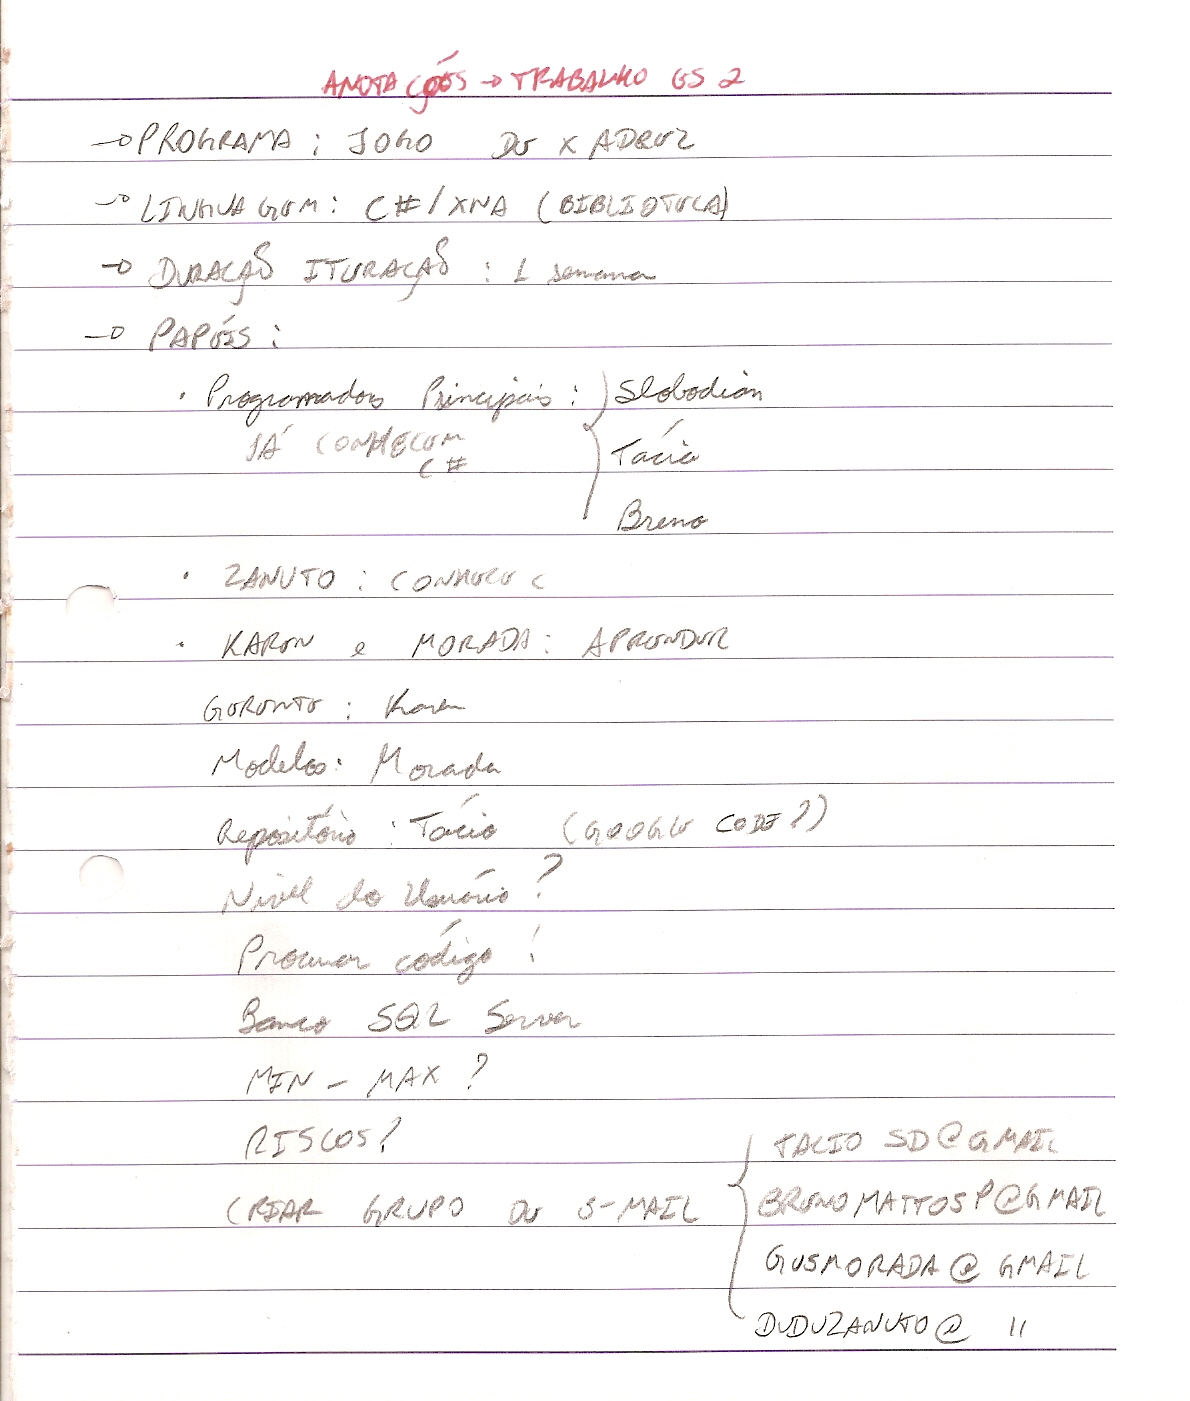 ANOTAÇÕES → TRABALHO GS 2
→ PROGRAMA: JOGO DE XADREZ
→ LINGUAGEM: C#/XNA (BIBLIOTECA)
→ DURAÇÃO ITERAÇÃO: 1 semana
→ PAPÉIS:
• Programadores Principais: Slobodian
JÁ CONHECEM
C#
Tácio
Breno
• ZANUTO: CONHECE C
• KAREN e MORADA: APRENDER
GERENTE: Karen
Modelos: Morada
Repositório: Tácio (GOOGLE CODE?)
Nível do Usuário?
Procurar código!
Banco SQL Server
MIN-MAX?
RISCOS?
CRIAR GRUPO DE E-MAIL
TACIOSD@GMAIL
BRENOMATTOSP@GMAIL
GUSMORADA@GMAIL
DUDUZANUTO@ "